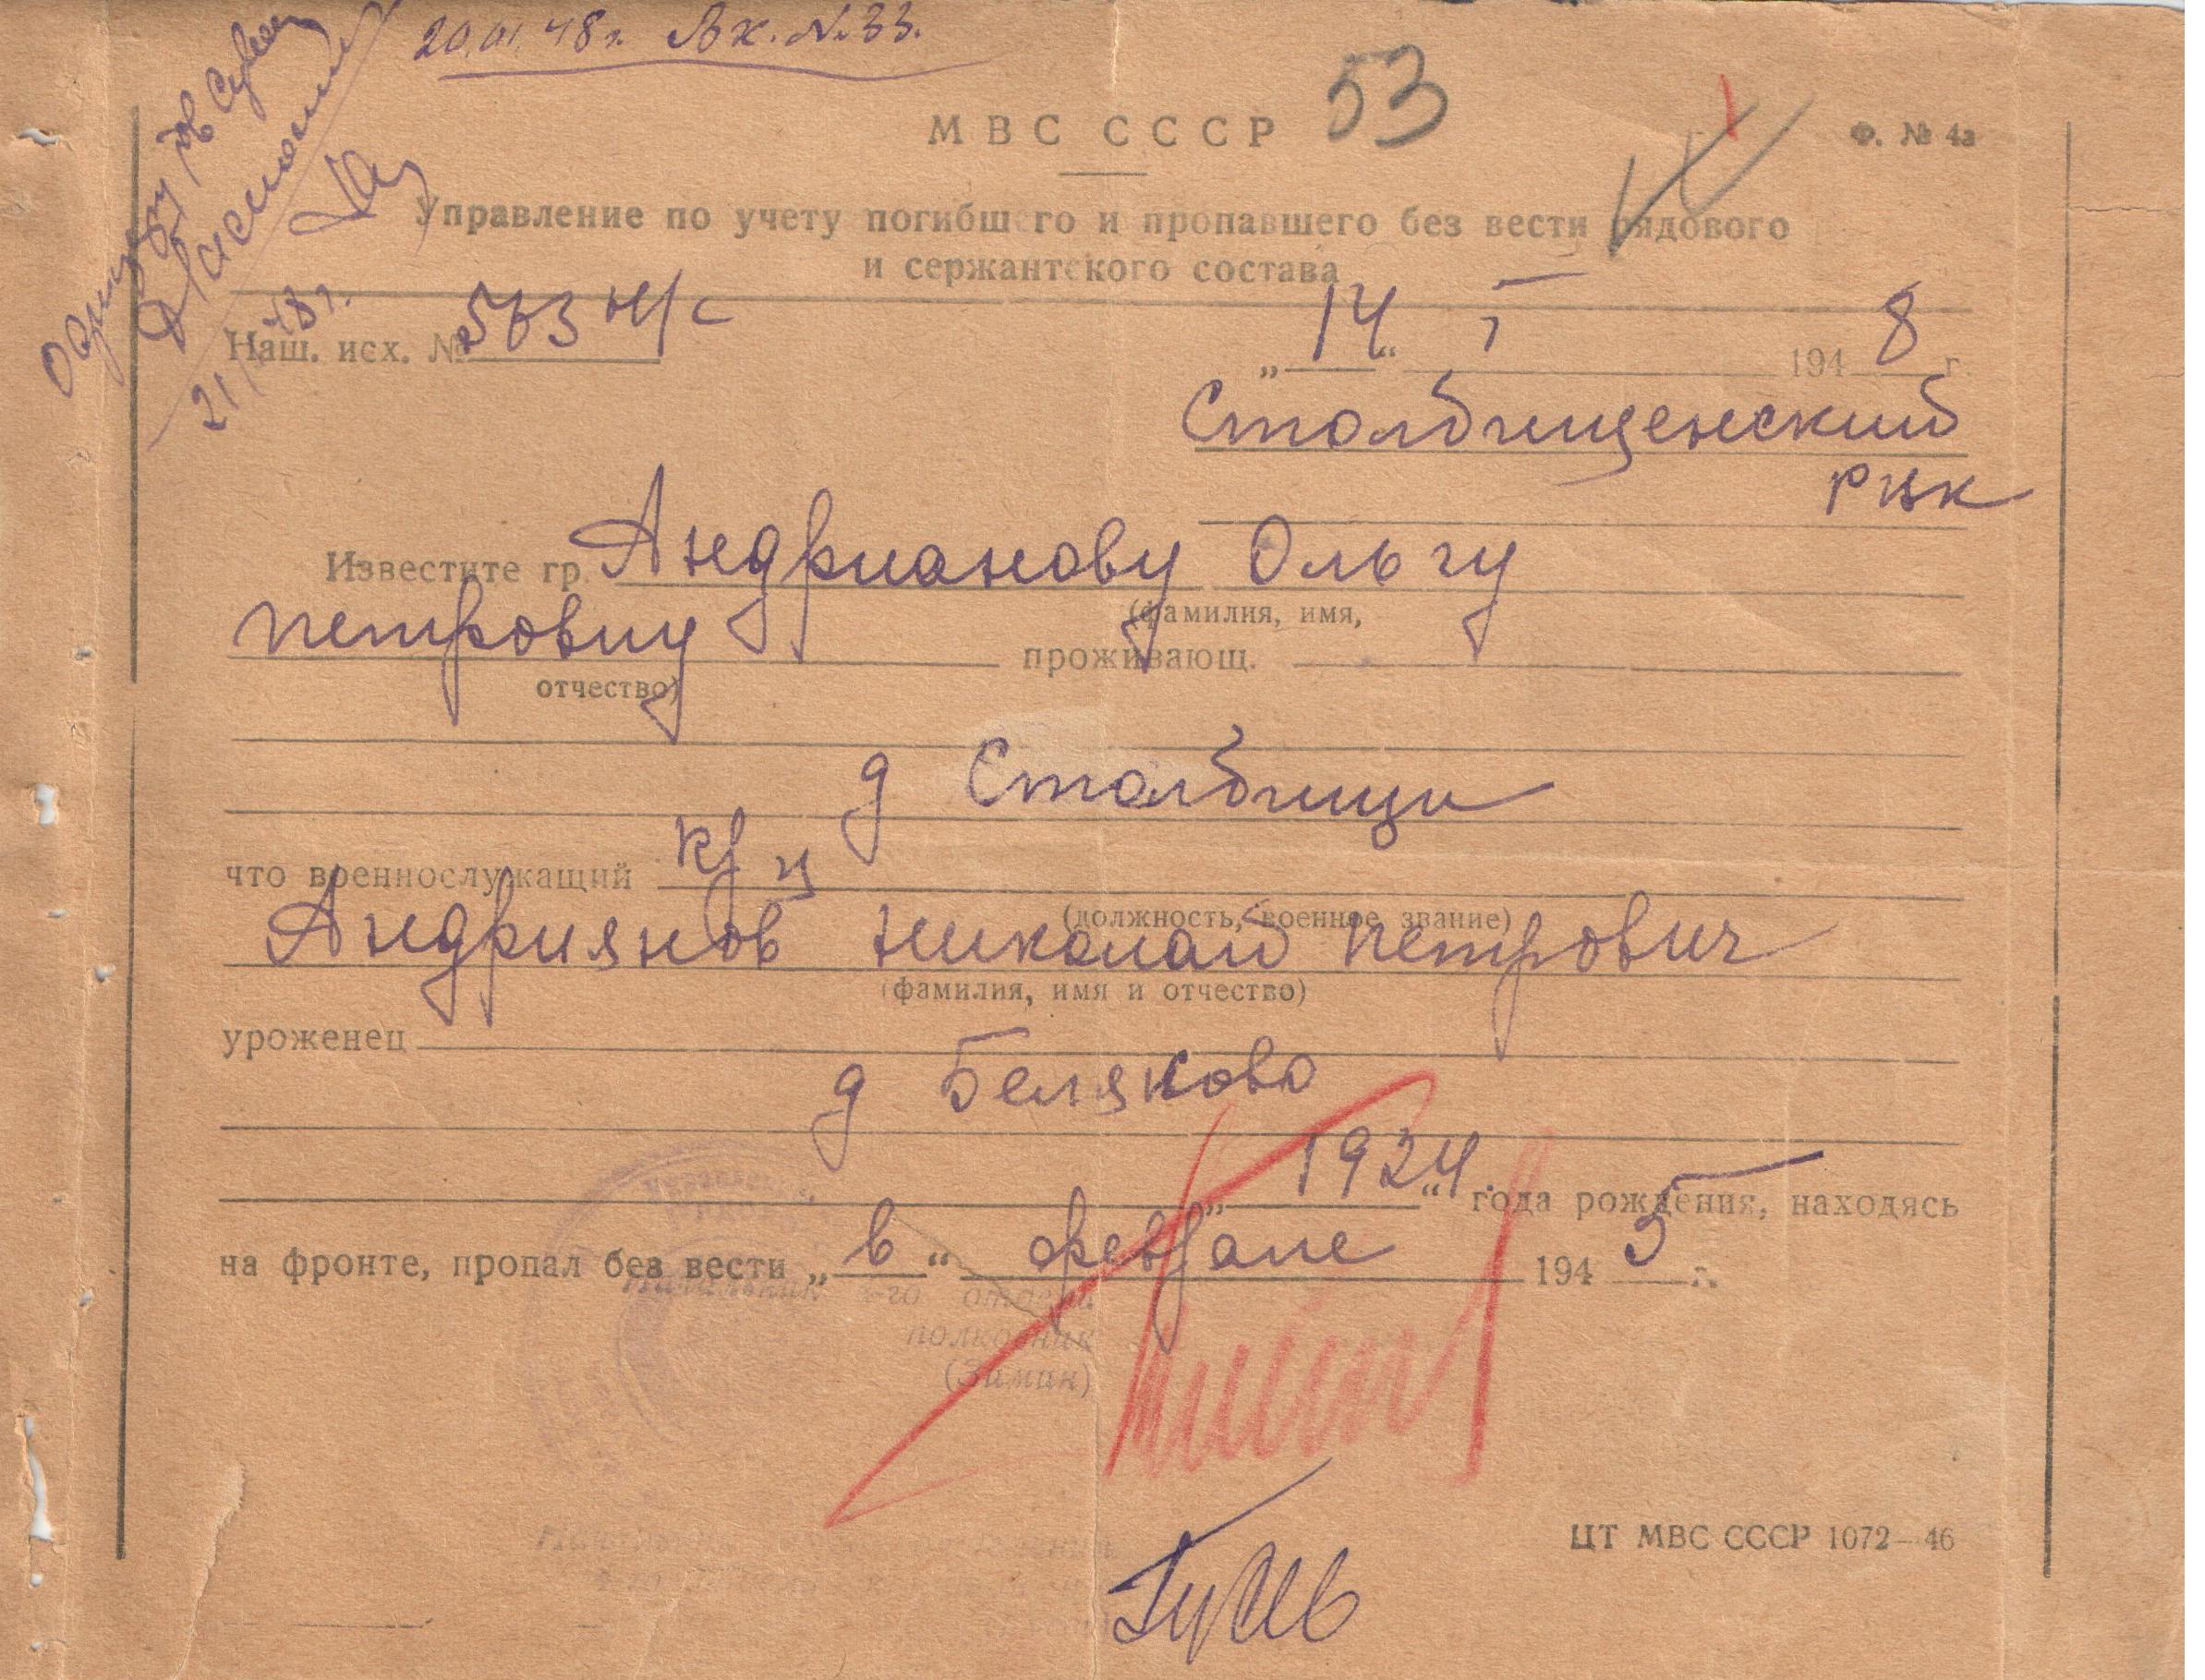 20.01.48г. Вх. №33.
53
МВС СССР
Ф. № 4а
Управление по учету погибшего и пропавшего без вести рядового
и сержантского состава
21/I 48г.
Наш. исх. № 563
„14“ I 1948 г.
Столбищенский
РВК
Известите гр. Андрианову Ольгу
(фамилия, имя,
Петровну проживающ.
отчество)
д Столбищи
что военнослужащий кр-ц
(должность, военное звание)
Андриянов Николай Петрович
(фамилия, имя и отчество)
уроженец
д Беляково
„1924“ года рождения, находясь
на фронте, пропал без вести „в“ феврале 1945 г.
Начальник -го отдела
полковник
(Замин)
ЦТ МВС СССР 1072—46